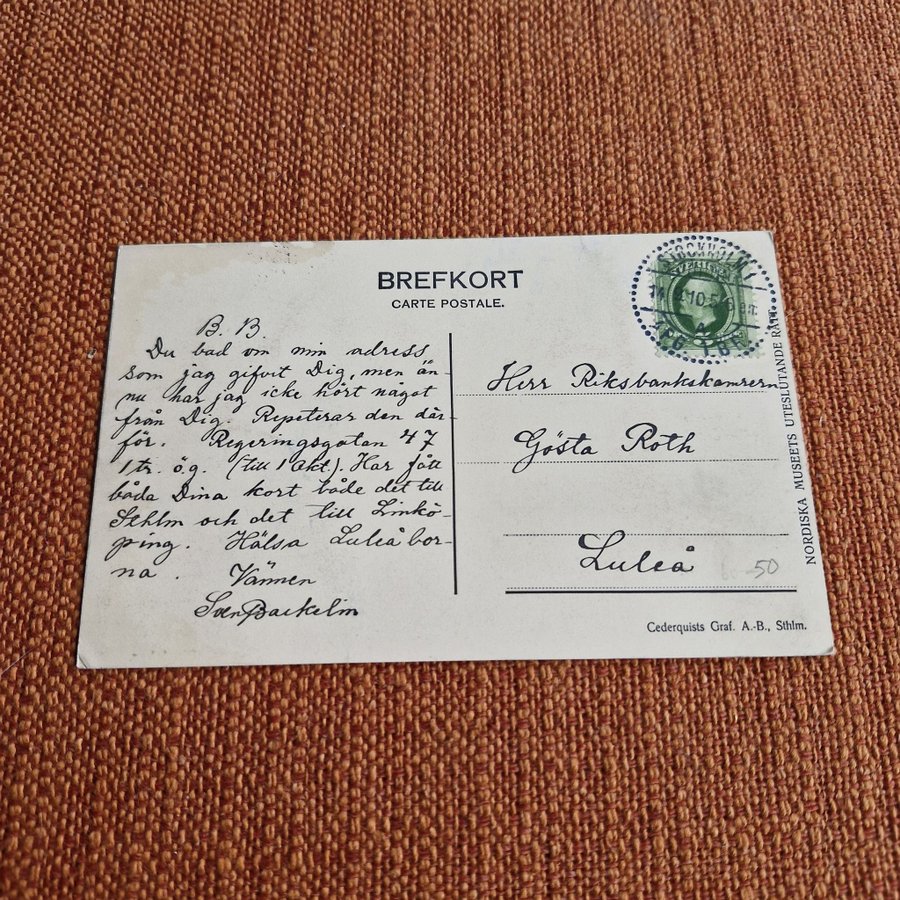 BREFKORT
CARTE POSTALE.
B. B.
Du bad om min adress
som jag gifvit Dig, men än
nu har jag icke hört något
från Dig. Repeterar den där-
för. Regeringsgatan 47
1 tr. ö.g. (till 1 Okt). Har fått
båda Dina kort både det till
Sthlm och det till Linkö-
ping. Hälsa Luleåbor-
na. Vännen
Sven
Herr Riksbankskamrern
Gösta Roth
Luleå
50
STOCKHOLM 1
SVERIGE
NORDISKA MUSEETS UTESLUTANDE RÄTT.
Cederquists Graf. A.-B., Sthlm.